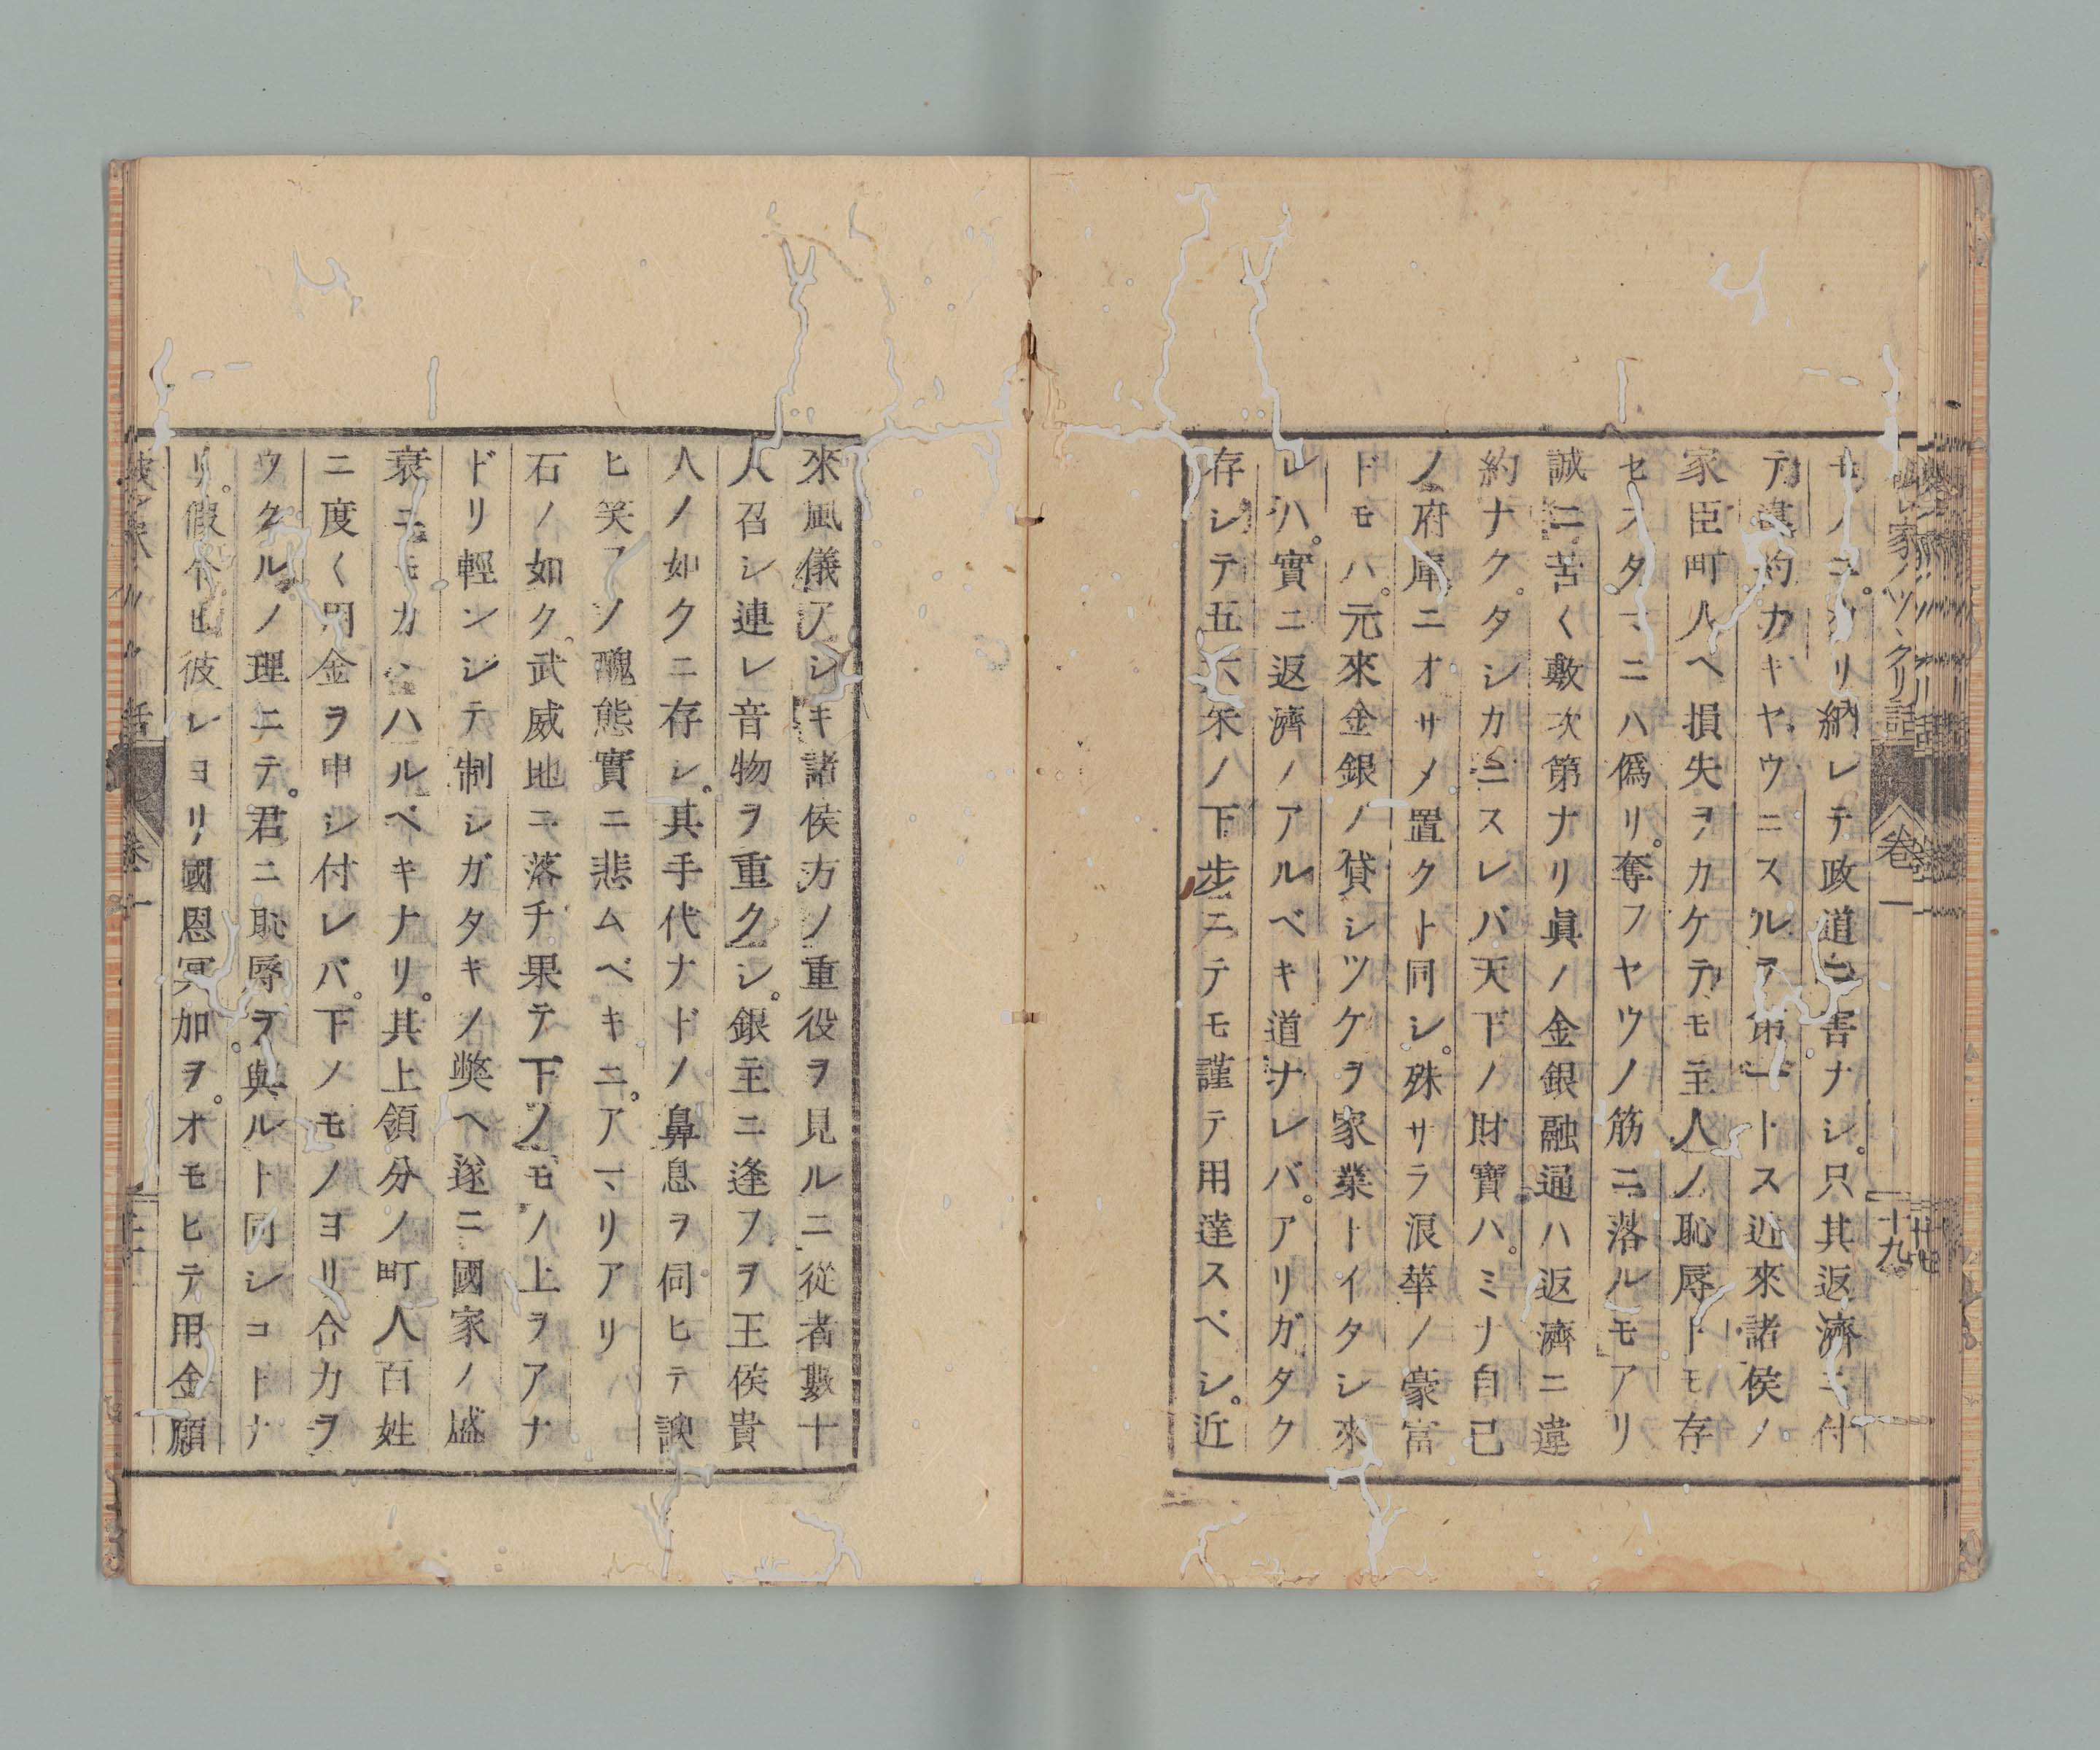 破レ家ノツヽクリ話
卷一
十九
サハニヨリ納レテ政道ニ害ナシ。只其返濟ニ付
テ違約カキヤウニスルヲ第一トス近來諸侯ノ
家臣町人ヘ損失ヲカケテモ主人ノ恥辱トモ存
セスタマニハ僞リ。奪フヤウノ筋ニ落ルモアリ
誠ニ苦く敷次第ナリ眞ノ金銀融通ハ返濟ニ違
約ナク。タシカニスレバ天下ノ財寶ハ。ミナ自己
ノ府庫ニオサメ置クト同シ。殊サラ浪華ノ豪富
ドモハ。元來金銀ノ貸シツケヲ家業トイタシ來
レハ。實ニ返濟ノアルベキ道ナレバ。アリガタク
存シテ五六朱ノ下歩ニテモ謹テ用達スベシ。近
來風儀アシキ諸侯方ノ重役ヲ見ルニ從者數十
人召シ連レ音物ヲ重クシ。銀主ニ逢フヲ王侯貴
人ノ如クニ存シ。其手代ナドノ鼻息ヲ伺ヒテ諛
ヒ笑フノ醜態實ニ悲ムベキニ。アマリアリ
石ノ如ク。武威地ニ落チ果テ下ノモノ上ヲアナ
ドリ輕ンシテ制シガタキノ獘ヘ遂ニ國家ノ盛
衰ニモカヽハルベキナリ。其上領分ノ町人百姓
ニ度く用金ヲ申シ付レバ。下ノモノヨリ合力ヲ
ウクルノ理ニテ。君ニ恥辱ヲ與ルト同シコトナ
リ。假令ヒ彼レヨリ國恩冥加ヲ。オモヒテ用金願
卷一